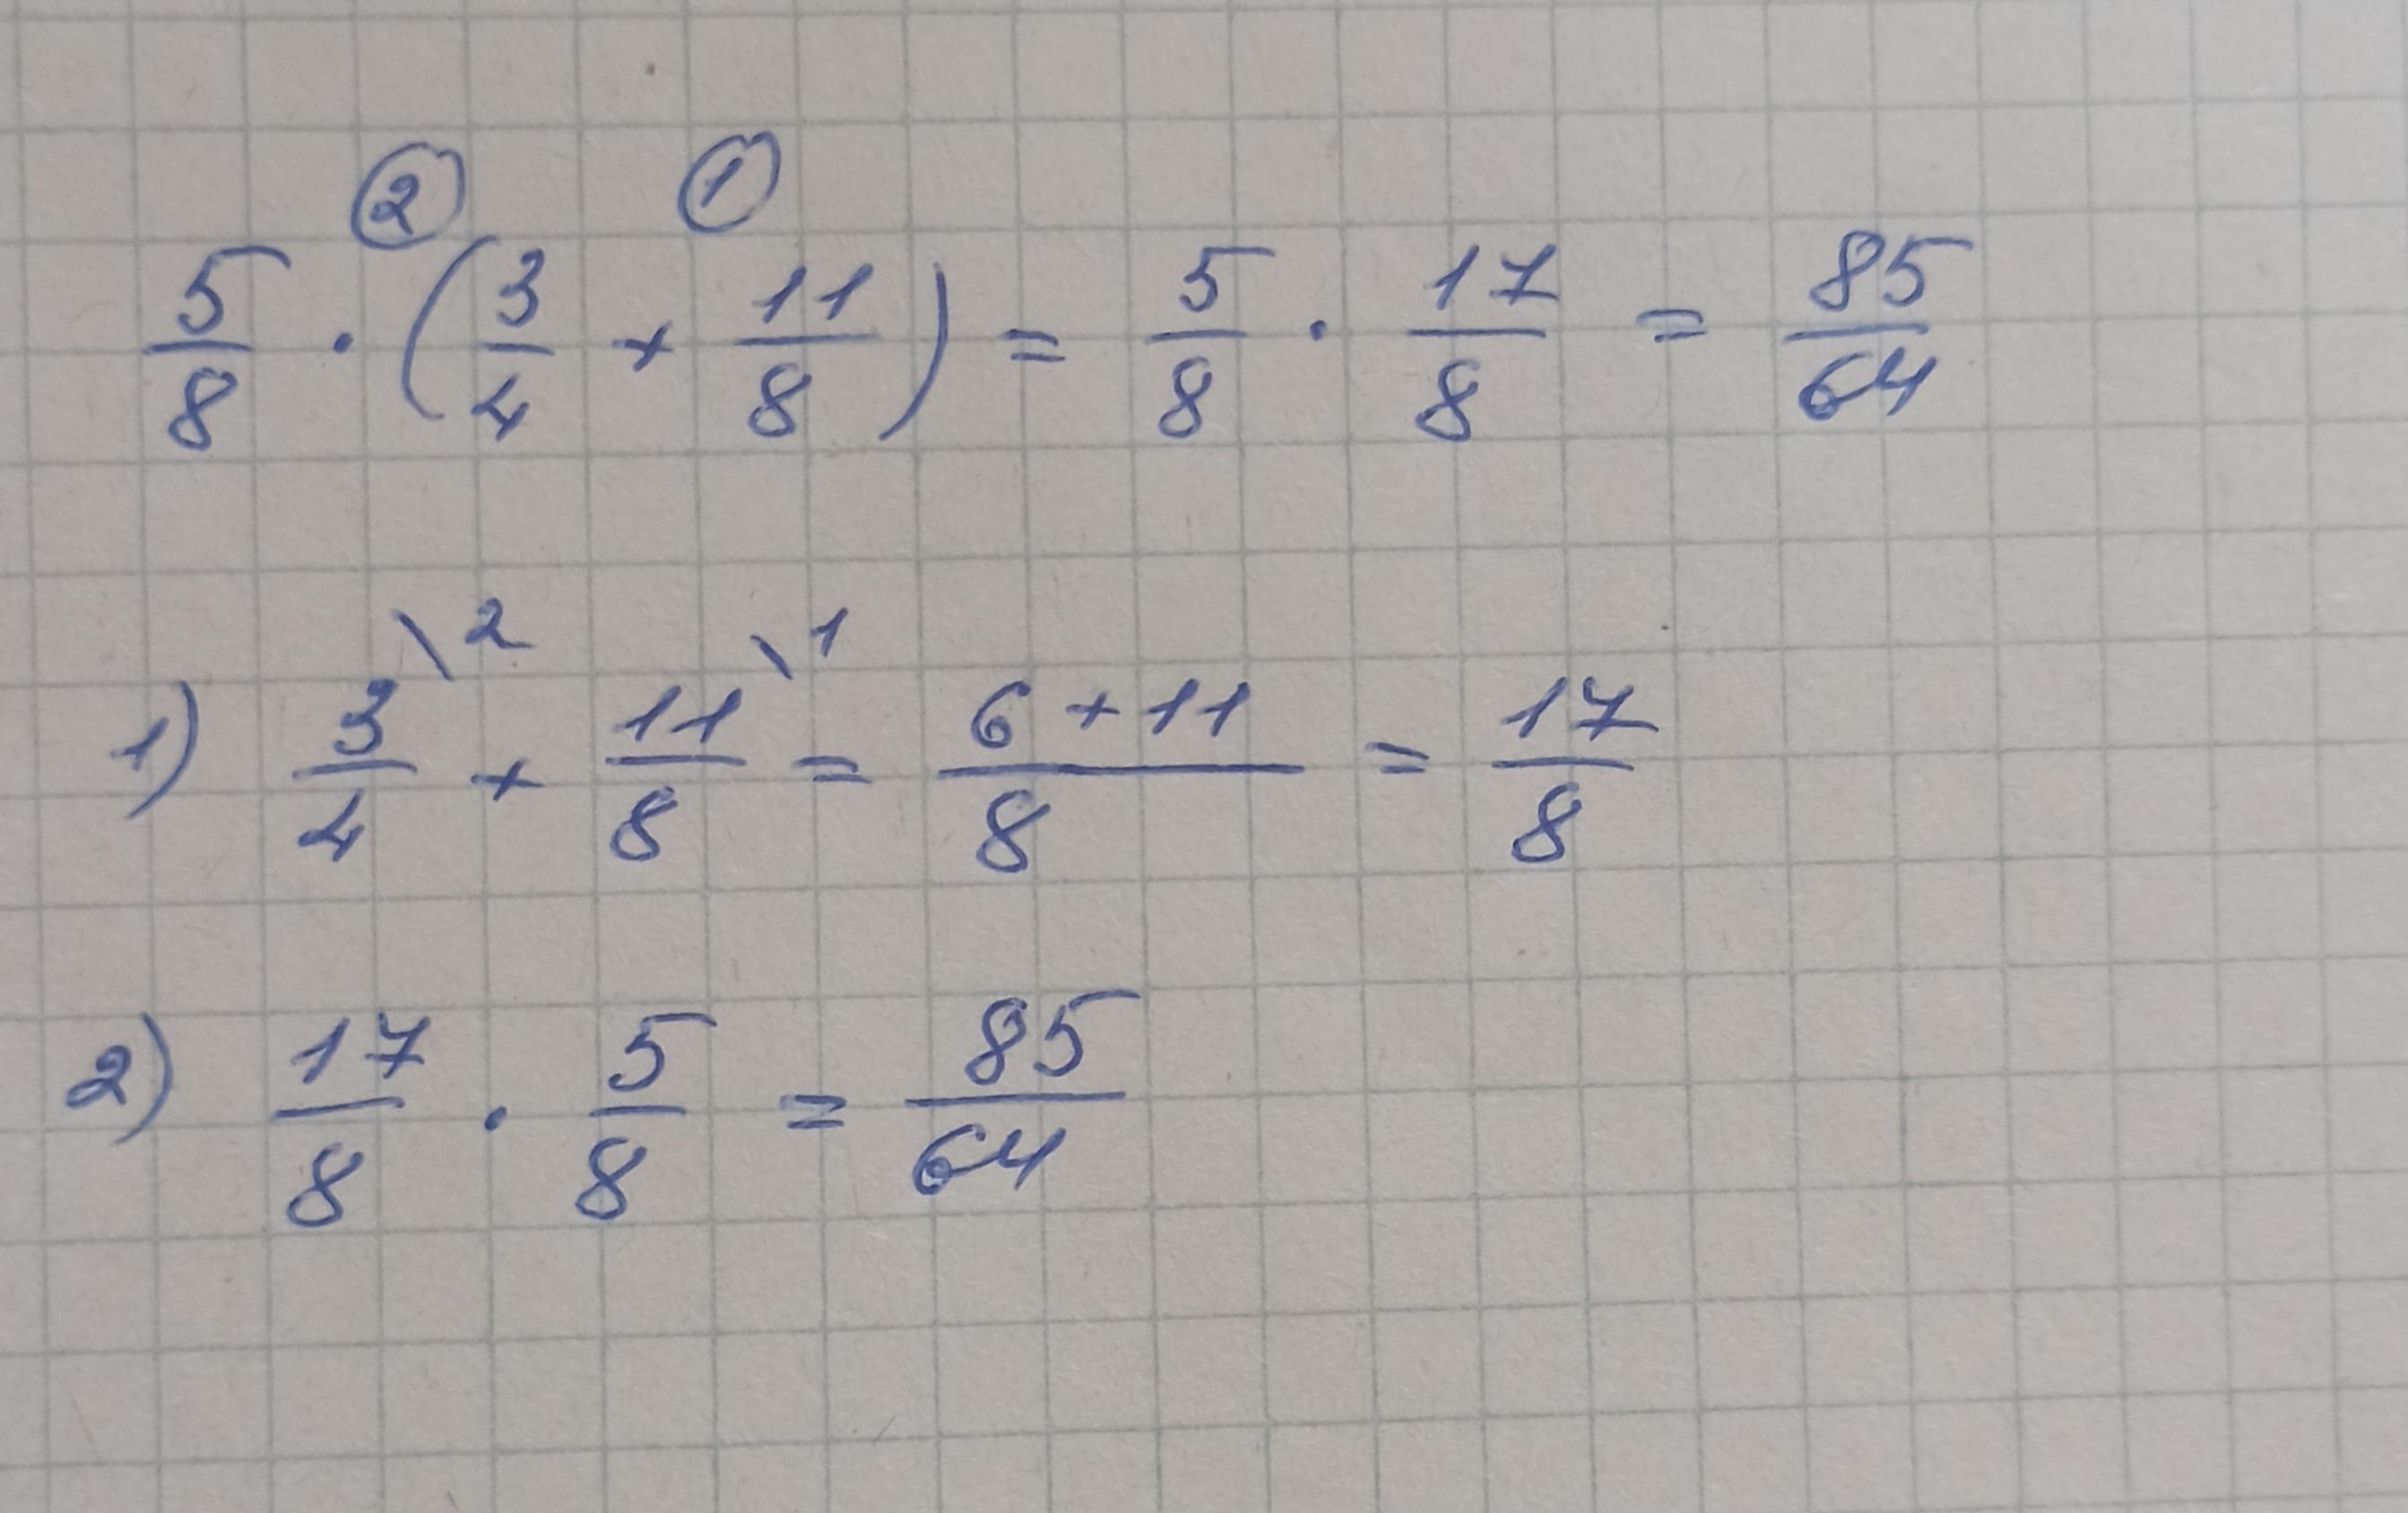 ② ①
5/8 · (3/4 + 11/8) = 5/8 · 17/8 = 85/64
\2 \1
1) 3/4 + 11/8 = (6 + 11)/8 = 17/8
2) 17/8 · 5/8 = 85/64